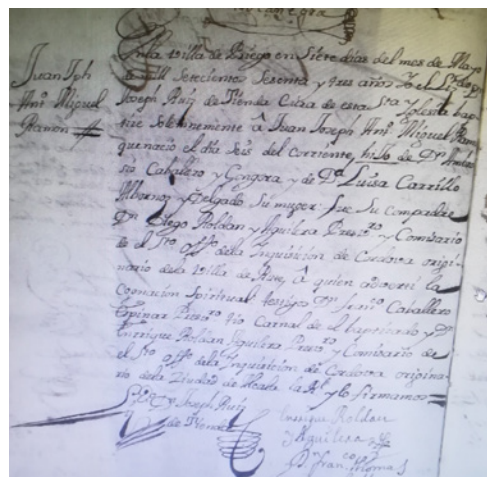 Juan Jph
Anto. Miguel
Ramon
En la Villa de Priego en Siete dias del mes de Mayo
de mill Setecientos Sesenta y tres años Yo el
Joseph Ruiz de Tienda Cura de esta Sta Yglesia bap
tize Solemnemente â Juan Joseph Anto. Miguel Ramon
que nacio el dia Seis del corriente, hijo de Dn.
Caballero y Gongora y de Da. Luisa Carrillo
Albornoz y Delgado Su muger: fue Su compadre
Dn. Diego Roldan y Aguilera Presvro. y Comisario
de el Sto. offo. de la Inquisicion de Cordova origi-
nario de la Villa de Rute, â quien adverti la
Cognacion Spiritual testigos Dn. Franco. Caballero
Espinar Presvro. tio Carnal de el baptizado y Dn.
Enrrique Roldan Aguilera Presvro. y Comisario de
el Sto. offo. de la Inquisicion de Cordova origina-
rio de la Ziudad de Alcala la Rl. y lo firmamos
Dn. Joseph Ruiz
de Tienda
Enrique Roldan
y Aguilera
Dn. Franco. Palomas